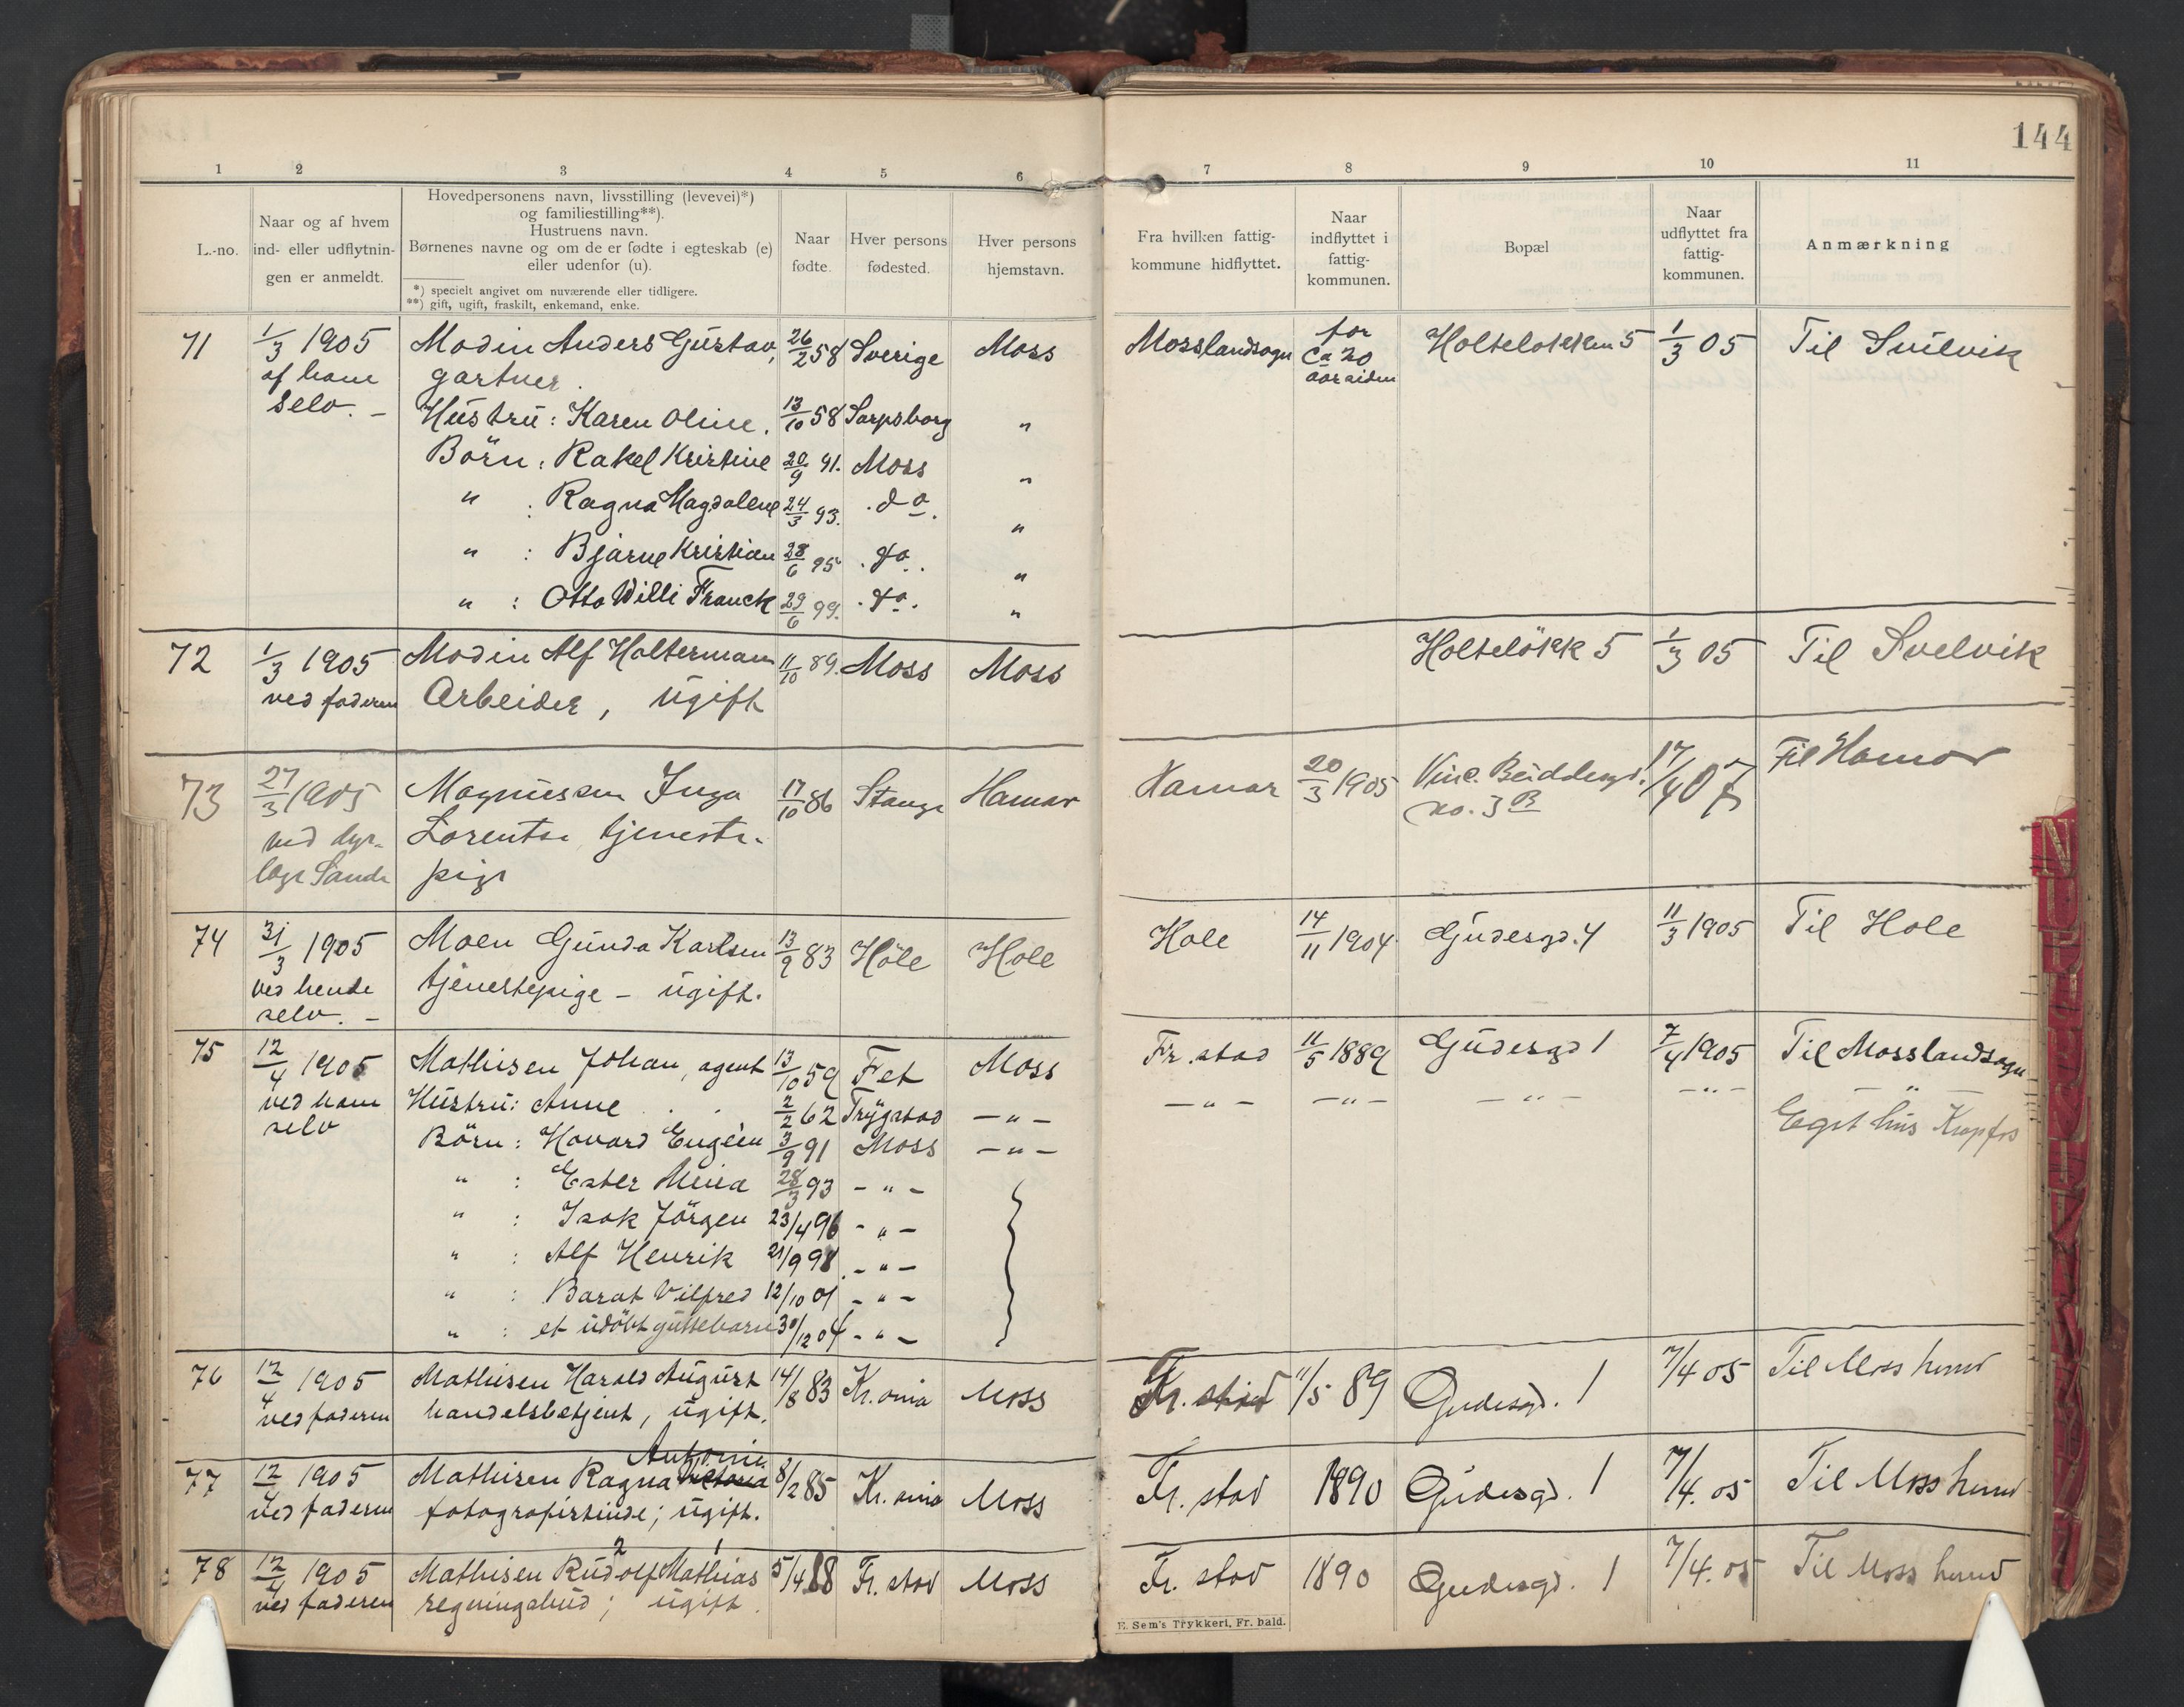 144
1 2 3 4 5 6 7 8 9 10 11
L.-no.
Naar og af hvem
ind- eller udflytnin-
gen er anmeldt.
Hovedpersonens navn, livsstilling (levevei)*)
og familiestilling**).
Hustruens navn.
Børnenes navne og om de er fødte i egteskab (e)
eller udenfor (u).
*) specielt angivet om nuværende eller tidligere.
**) gift, ugift, fraskilt, enkemand, enke.
Naar
fødte.
Hver persons
fødested.
Hver persons
hjemstavn.
Fra hvilken fattig-
kommune hidflyttet.
Naar
indflyttet i
fattig-
kommunen.
Bopæl
Naar
udflyttet fra
fattig-
kommunen.
Anmærkning
71 1/3 1905 Modin Anders Gustav, 26/2 58 Sverige Moss Mosslandsogn for Holteløkken 5 1/3 05 Til Svelvik
af ham gartner. ca 20
selv. – Hustru: Karen Oline. 13/10 58 Sarpsborg " aar siden
Börn: Rakel Kristine 20/9 91. Moss "
" : Ragna Magdalene 24/3 93. do. "
" : Bjarne Kristian 28/6 95 do. "
" : Otto Willi Franck 29/6 99. do. "
72 1/3 1905 Modin Alf Holtermann 11/10 89. Moss Moss Holtelökk 5 1/3 05 Til Svelvik
ved faderen Arbeider, ugift
73 27/3 1905 Magnussen Inga 17/10 86 Stange Hamar Hamar 20/3 1905 Vinc. Buddesgd. 17/4 07 Til Hamar
ved dyr- Lorentse tjeneste- no. 3 B
læge Sande pige
74 31/3 1905 Moen Gunda Karlsen 13/9 83 Hole Hole Hole 14/11 1904 Gudesgd. 4 11/3 1905 Til Hole
ved hende tjenestepige – ugift.
selv. –
75 12/4 1905 Mathisen Johan, agent 13/10 59 Fet Moss Fr. stad 11/5 1889 Gudesgd 1 7/4 1905 Til Mosslandsogn
ved ham Hustru: Anne . . 2/2 62 Trygstad – " – – " – – " – – " – – " – "
selv Börn: Havard Eugén 3/9 91 Moss – " – Eget hus
" : Ester Mina 28/3 93 – " –
" : Isak Jörgen 23/4 96 – " –
" : Alf Henrik 21/9 98 – " –
" : Barat Vilfred 12/10 01 – " –
" : et udöbt guttebarn 30/12 04 – " –
76 12/4 1905 Mathisen Harald August 14/8 83 Kr. ania Moss Fr. stad 11/5 89 Gudesgd. 1 7/4 05 Til Moss herred
ved faderen handelsbetjent, ugift.
Antonie
77 12/4 1905 Mathisen Ragna Victoria 8/2 85 Kr. ania Moss Fr. stad 1890 Gudesgd. 1 7/4. 05 Til Moss herred
ved faderen fotografistinde; ugift.
2 1
78 12/4 1905 Mathisen Rudolf Mathias 5/4 88 Fr. stad Moss Fr. stad 1890 Gudesgd. 1 7/4. 05 Til Moss herred
ved faderen regningsbud; ugift.
E. Sem's Trykkeri, Fr. hald.